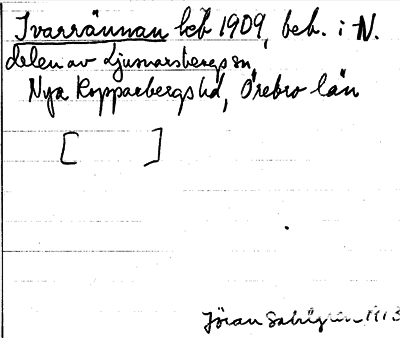 Ivarrännan keb 1909, beh. i N.
delen av Ljusnarsbergs sn,
Nya Kopparbergs hd, Örebro län
[ ]
Jöran Sahlgren 1913